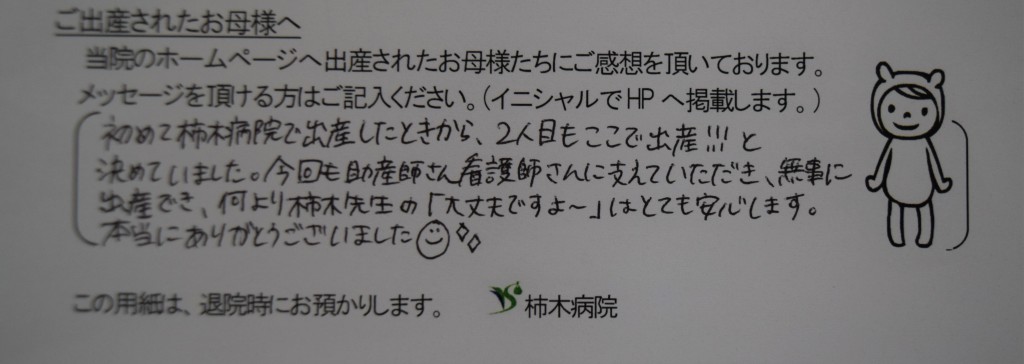 ご出産されたお母様へ
当院のホームページへ出産されたお母様たちにご感想を頂いております。
メッセージを頂ける方はご記入ください。(イニシャルでHPへ掲載します。)
初めて柿木病院で出産したときから、2人目もここで出産!!!と
決めていました。今回も助産師さん看護師さんに支えていただき、無事に
出産でき、何より柿木先生の「大丈夫ですよ〜」はとても安心します。
本当にありがとうございました
この用紙は、退院時にお預かりします。 柿木病院